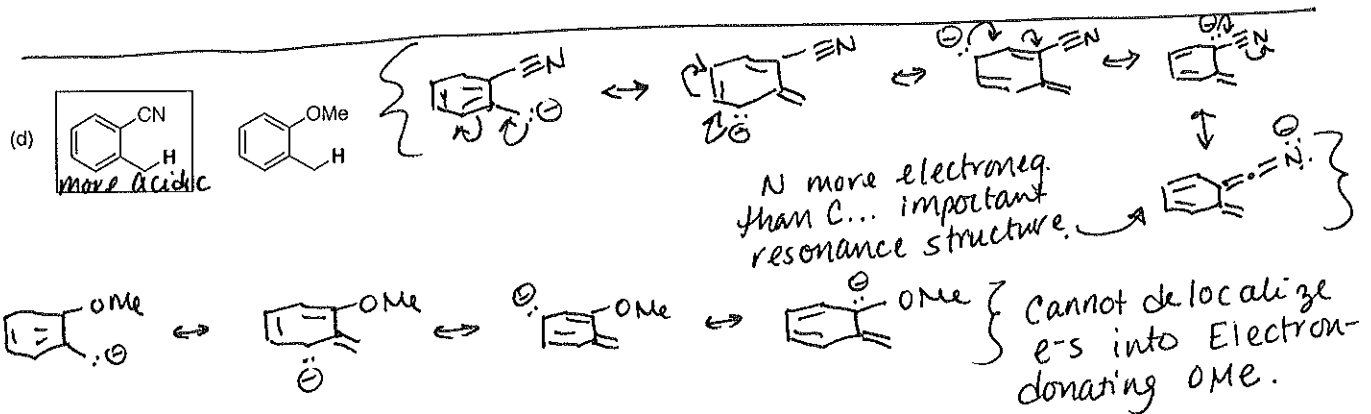 (d)
CN
H
more acidic
OMe
H
≡N ⊖
↔
≡N ⊖
↔
⊖ ≡N
↔
⊖ ≡N
N more electroneg.
than C... important
resonance structure.
N ⊖
OMe ⊖
↔
OMe ⊖
↔
⊖ OMe
↔
⊖ OMe
Cannot delocalize
e-s into Electron-
donating OMe.